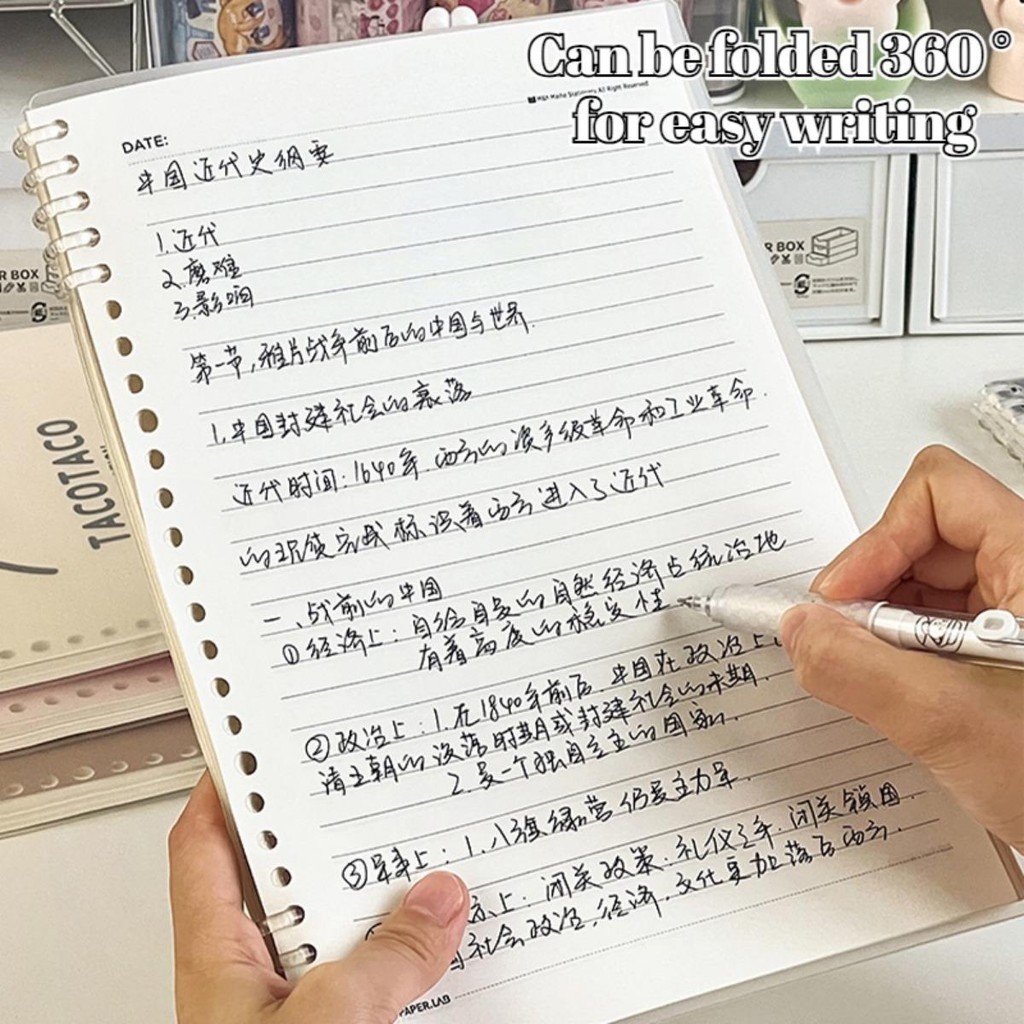 Can be folded 360°
for easy writing
M&H Maite Stationery All Right Reserved
DATE:
中国近代史纲要
1.近代
2.磨难
3.影响
第一节,鸦片战争前后的中国与世界.
1.中国封建社会的衰落
近代时间:1640年.西方的资产级革命和工业革命.
的现续完成标识着西方进入了近代
一、战前的中国
①经济上:自给自足的自然经济占统治地
有着高度的稳定性
②政治上:1.在1840年前后.中国在政治上
清王朝的没落时期或封建社会的末期.
2.是一个独自主的国家.
③军事上:1.八旗绿营仍是主力军.
上:闭关政策.礼仪之年.闭关锁国.
国社会政治,经济,文化更加落后西方.
PAPER.LAB
TACOTACO
R BOX
ER BOX